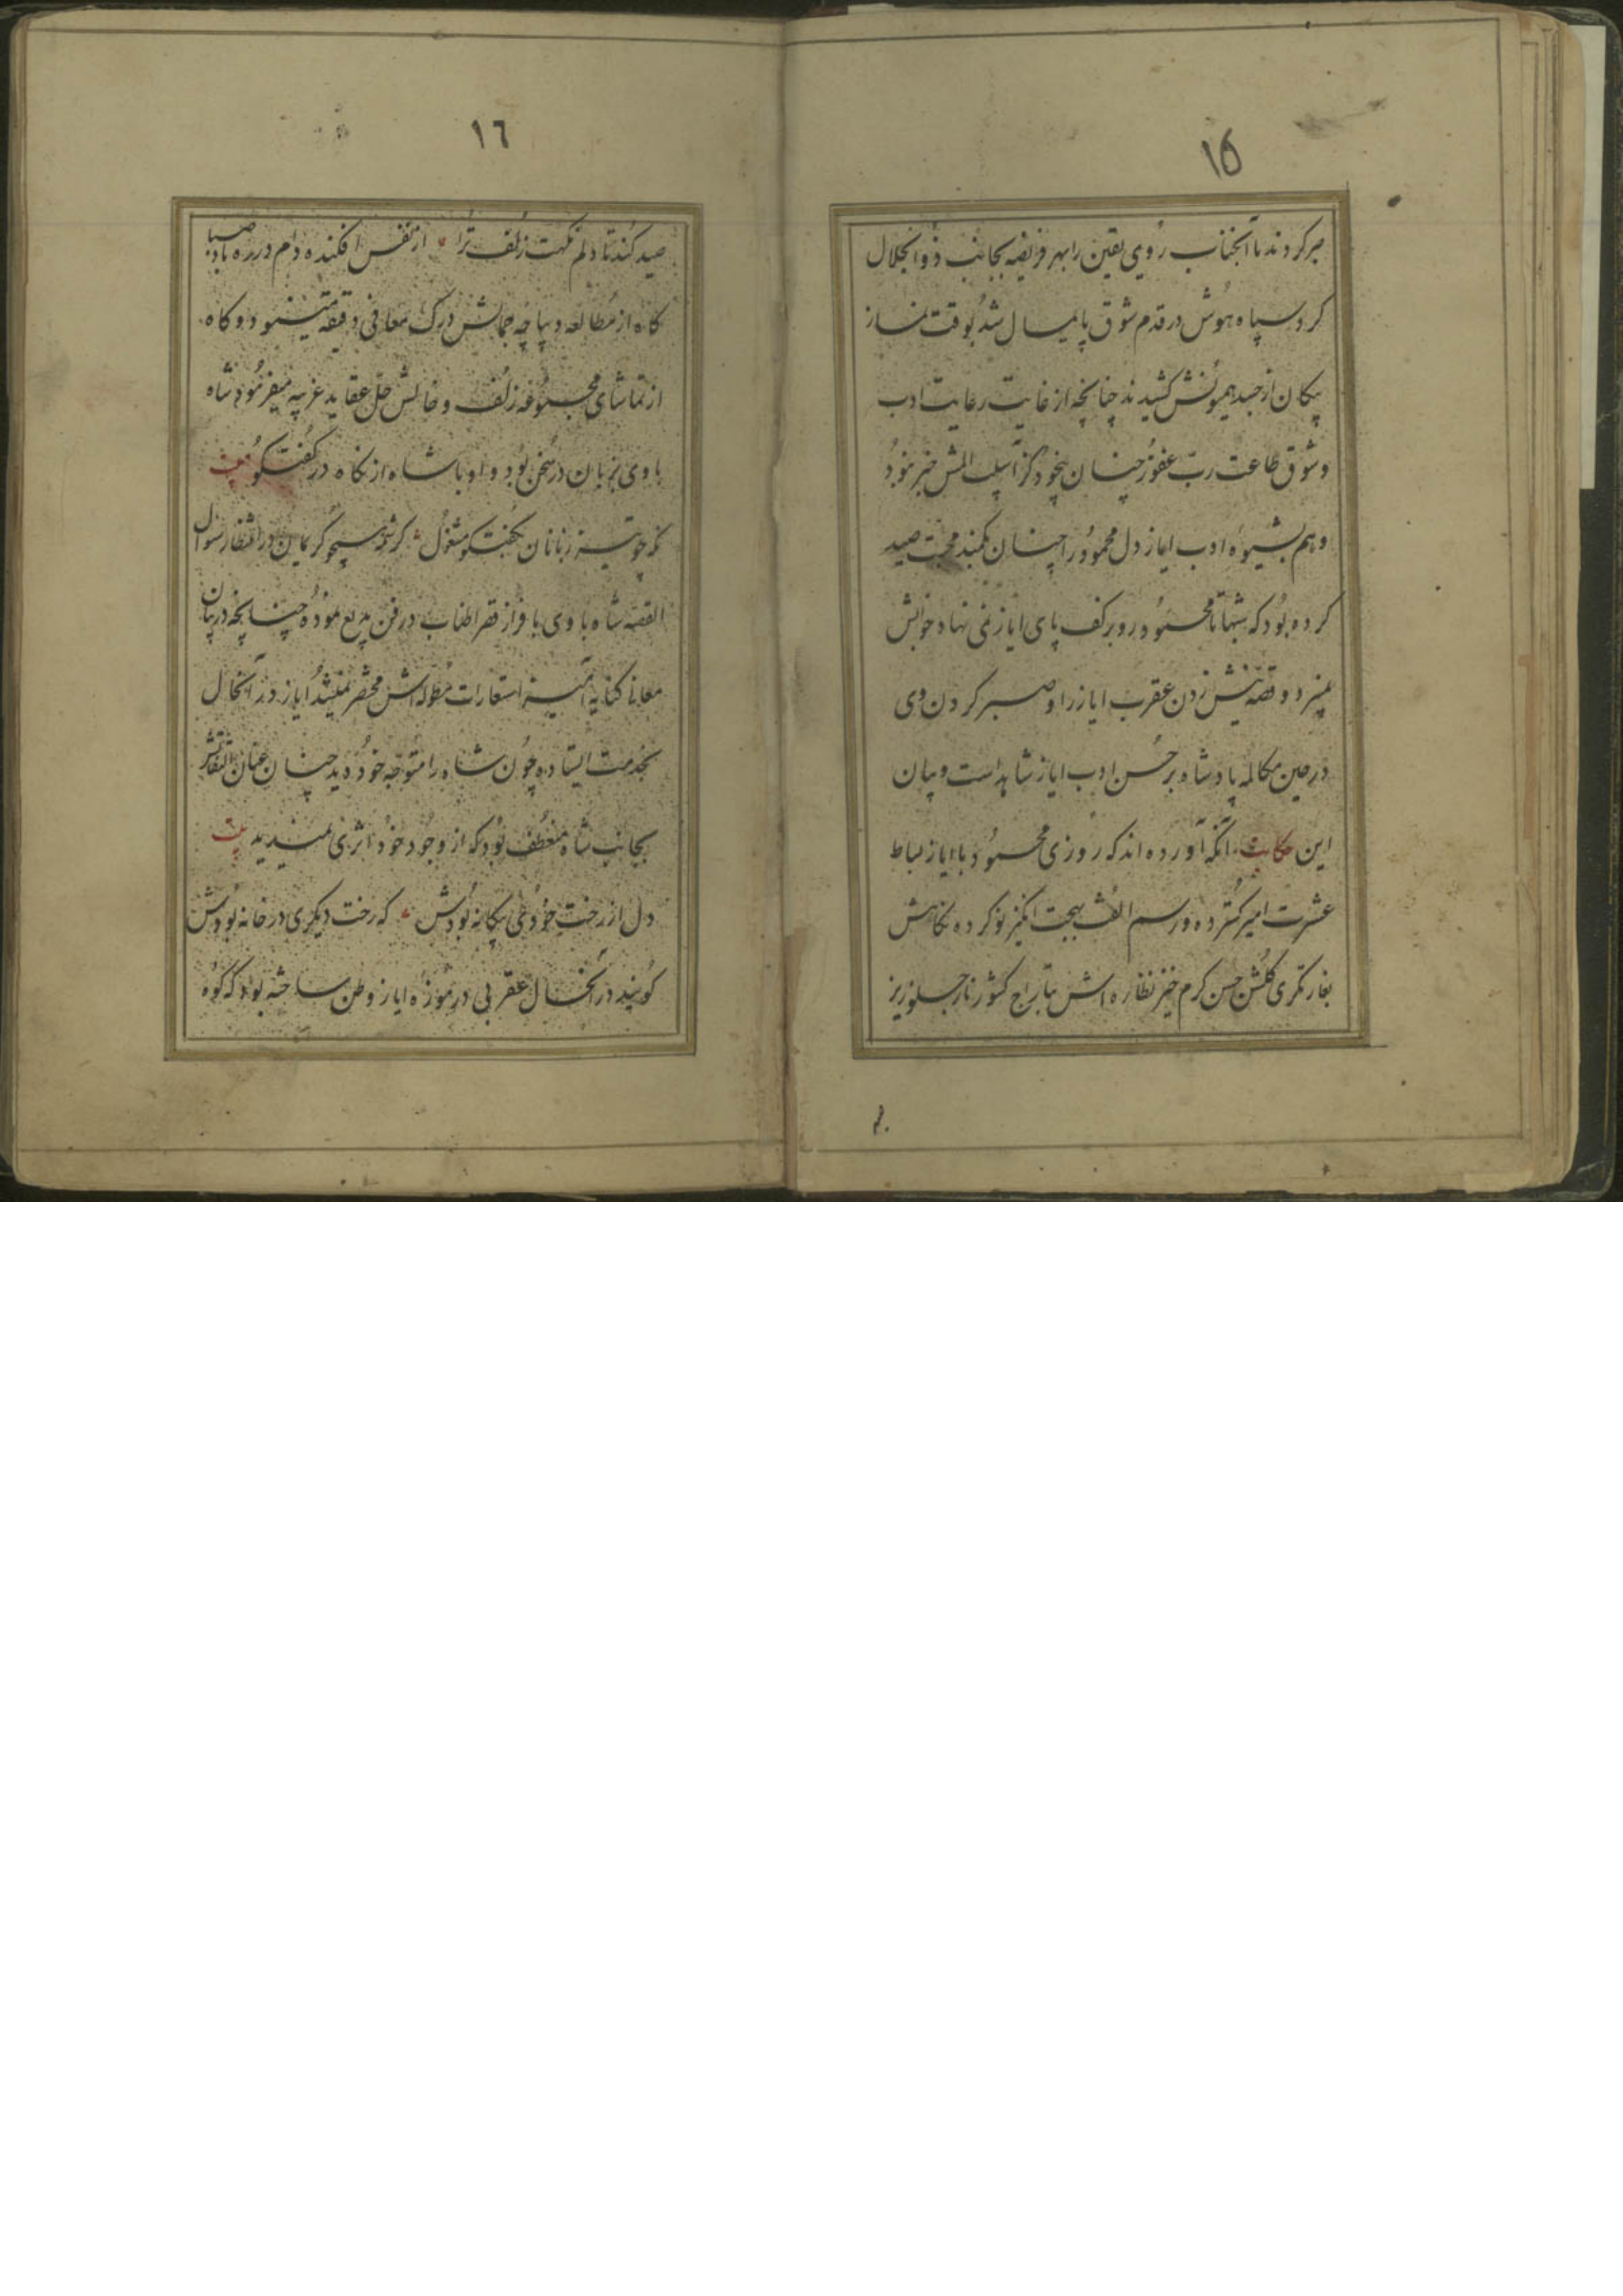 ١٥
صبر کردند تا آنجناب روی یقین را بهر فریضه بجانب ذو الجلال
کرد سپاه هوش در قدم شوق پایمال شد بوقت نماز
پیکان از جسد همیونش کشیدند چنانچه از غایت رعایت ادب
و شوق طاعت رب غفور چنان بیخود کز آسیب المش خبر نبود
و هم بشیوه ادب ایاز دل محمود را چنان بکمند محبت صید
کرده بود که شبها تا محمود رو بر کف پای ایاز نمی نهاد خوابش
نمیبرد و قصه نیش زدن عقرب ایاز را و صبر کردن وی
در حین مکالمه پادشاه بر حسن ادب ایاز شاهد است و بیان
این حکایت آنکه آورده اند که روزی محمود با ایاز بساط
عشرت گسترده و رسم الفت بهجت انگیز نو کرده نگاهش
بغارتگری گلشن حسن گرم خیز نظاره اش بتاراج کشور ناز جلوریز
١٦
صید کند تا دلم نکهت زلف ترا از نفس افکنده دام در ره باد صبا
گاه از مطالعه دیباچه جمالش درک معانی دقیقه مینمود و گاه
از تماشای مجموعه زلف و خالش حل عقاید غریبه میفرمود شاه
با وی بزبان در سخن بود و او با شاه از نگاه در گفتگو
نکه چو تیززبانان بگفتگو مشغول کرشمه همچو کریمان در انتظار سؤال
القصه شاه با وی باقراز فقر اطناب در فن بدیع نموده چنانچه در بیان
معانا کنایه آمیز استعارات مطوله اش مختصر نمیشد ایاز در آنحال
بخدمت ایستاده چون شاه را متوجه خود دید چنان عنان التفاتش
بجانب شاه منعطف بود که از وجود خود اثری نمیدید بیت
دل از رخت خودی بیگانه بودش که رخت دیگری در خانه بودش
گویند در آنحال عقربی در موزه ایاز وطن ساخته بود که کوه